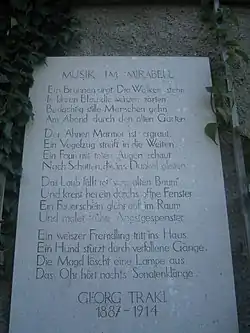 MUSIK IM MIRABELL
Ein Brunnen singt. Die Wolken stehn
Im klaren Blau, die weißen, zarten.
Bedächtig stille Menschen gehn
Am Abend durch den alten Garten.
Der Ahnen Marmor ist ergraut.
Ein Vogelzug streift in die Weiten.
Ein Faun mit toten Augen schaut
Nach Schatten, die ins Dunkel gleiten.
Das Laub fällt rot vom alten Baum
Und kreist herein durchs offne Fenster.
Ein Feuerschein glüht auf im Raum
Und malet trübe Angstgespenster.
Ein weißer Fremdling tritt ins Haus.
Ein Hund stürzt durch verfallene Gänge.
Die Magd löscht eine Lampe aus,
Das Ohr hört nachts Sonatenklänge.
GEORG TRAKL
1887-1914